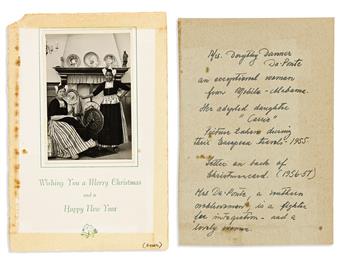 Wishing You a Merry Christmas
and a
Happy New Year
(over)
Mrs. Dorothy Danner
Da Ponte
an exceptional woman
from Mobile - Alabama.
Her adopted daughter
"Carrie"
Picture taken during
their European travels - 1955
Letter on back of
Christmascard. (1956-57)
Mrs Da Ponte, a southern
noblewoman, is a fighter
for integration - and a
lovely woman.